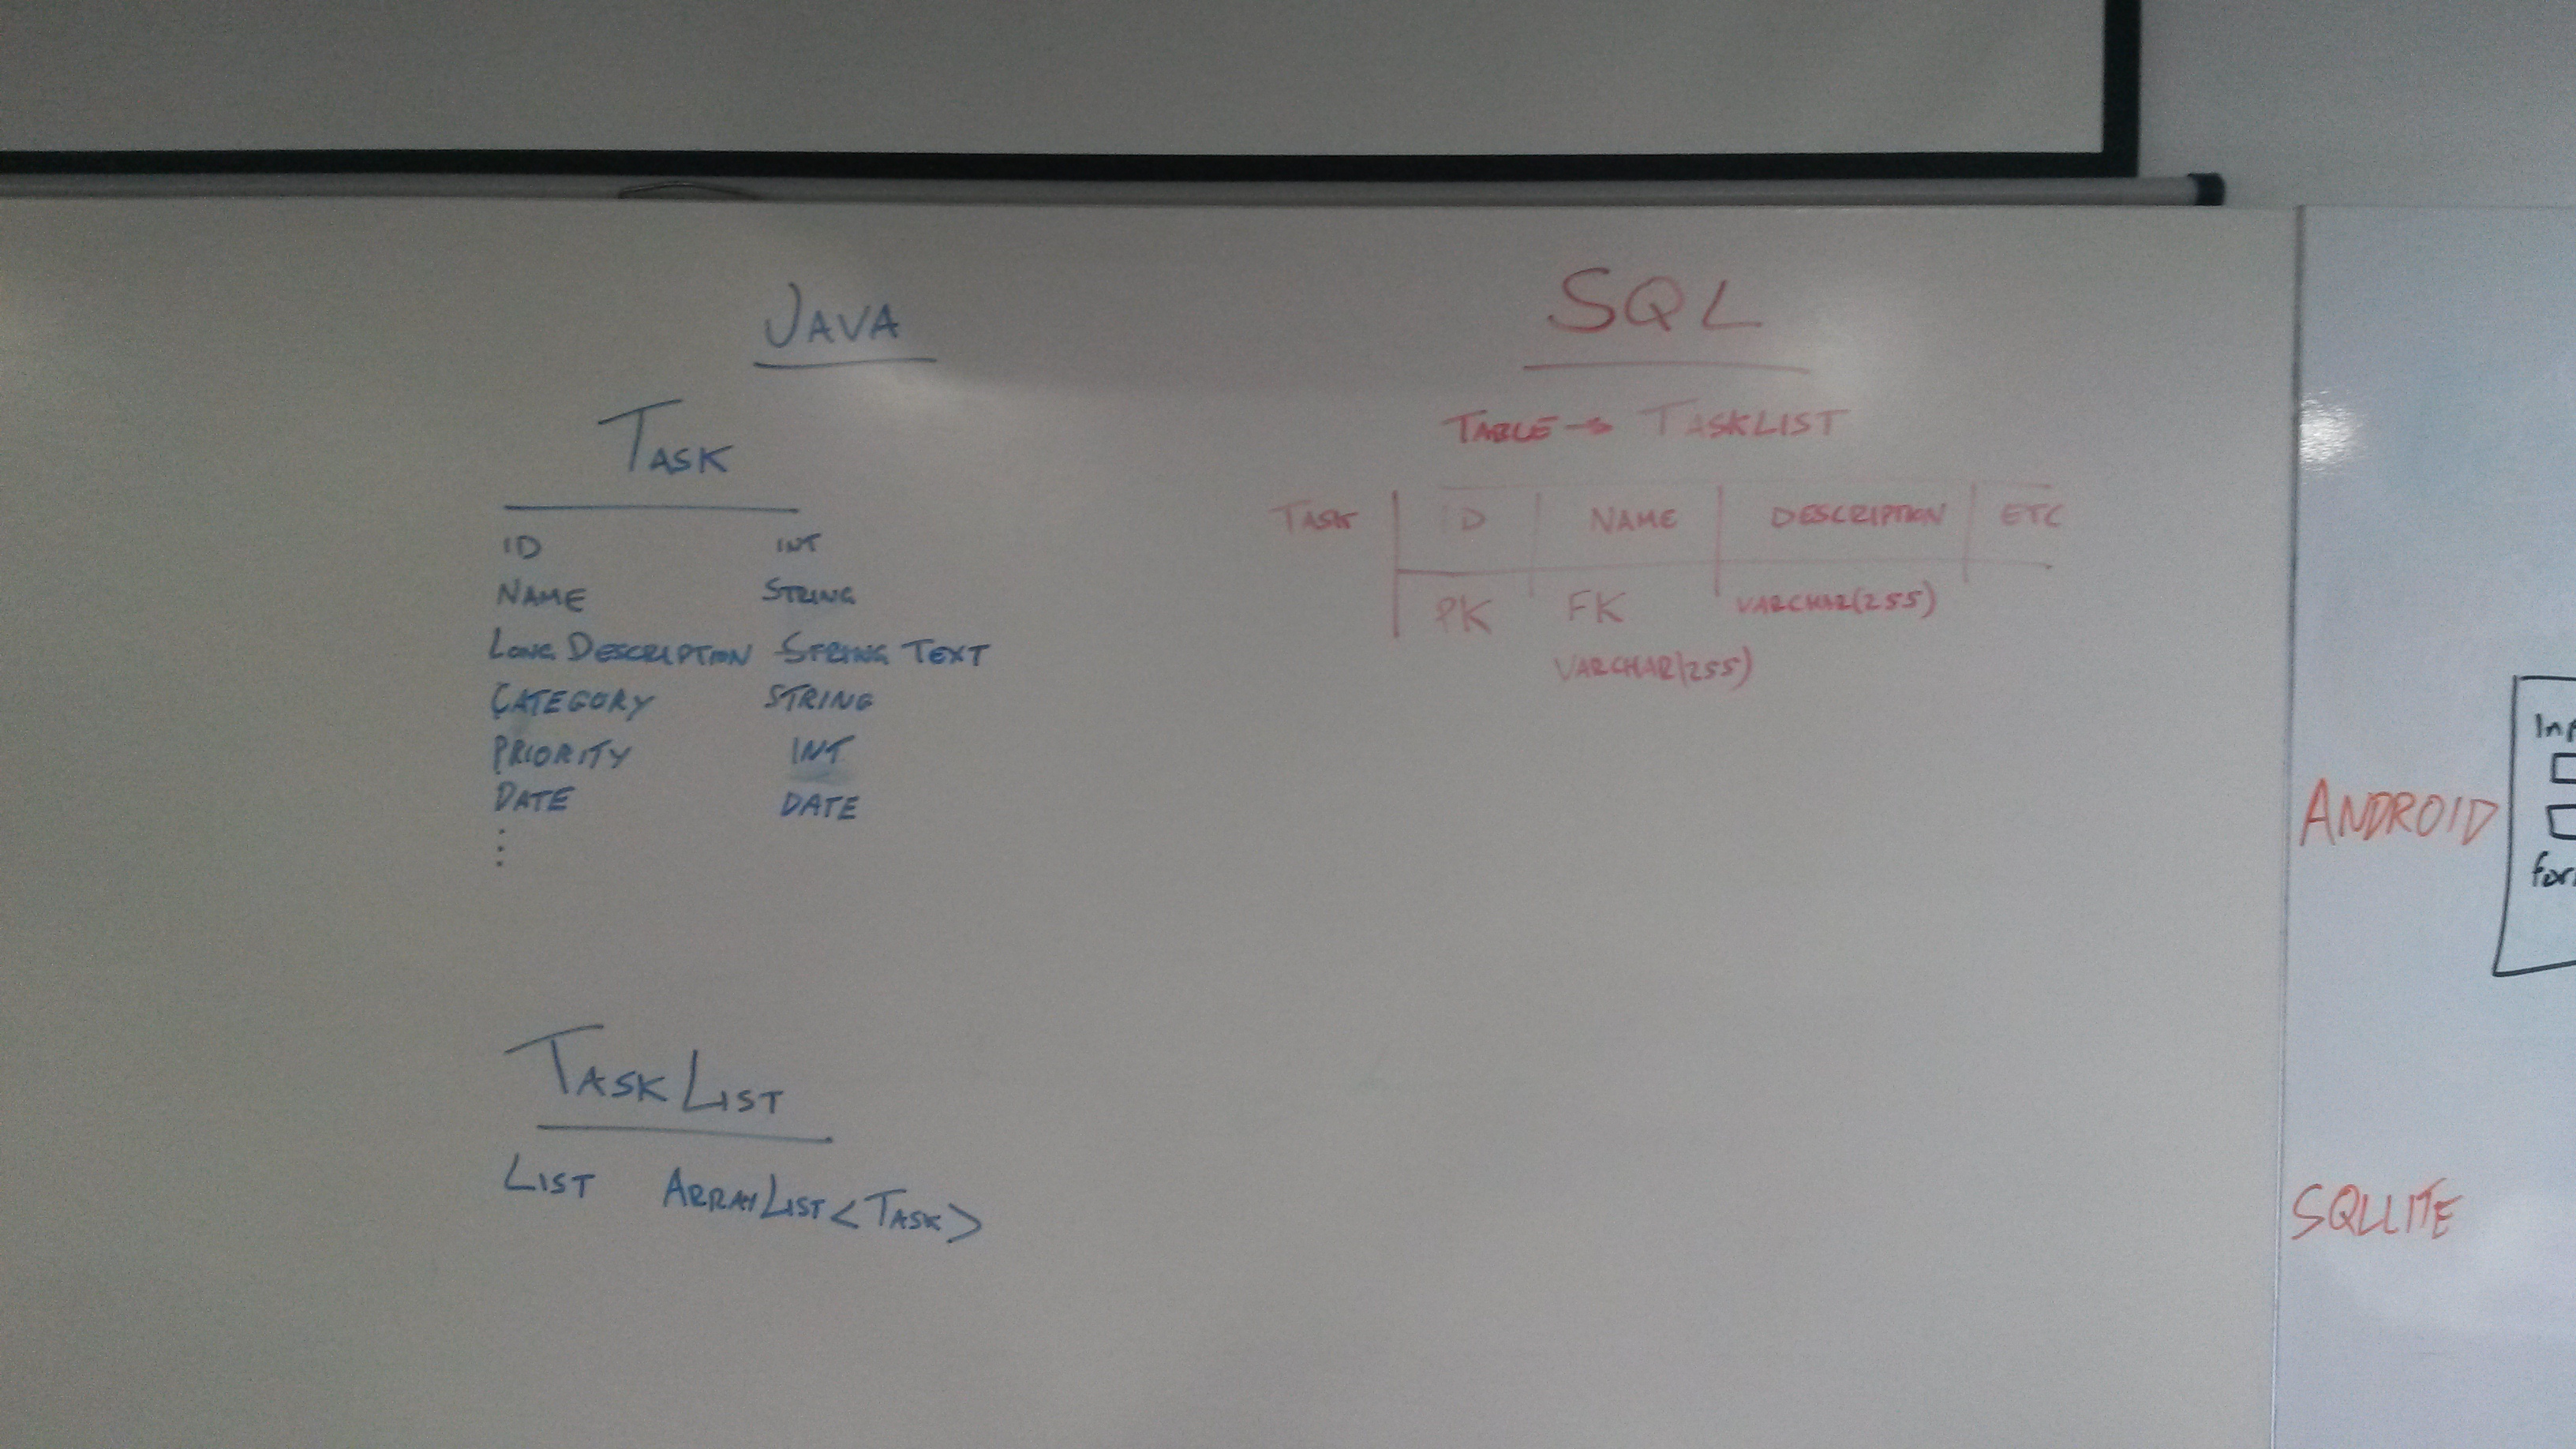 JAVA
TASK
ID INT
NAME STRING
LONG DESCRIPTION STRING TEXT
CATEGORY STRING
PRIORITY INT
DATE DATE
⋮
TASK LIST
LIST ARRAYLIST<TASK>
SQL
TABLE → TASKLIST
TASK ID NAME DESCRIPTION ETC
PK FK VARCHAR(255)
VARCHAR(255)
ANDROID
SQLLITE